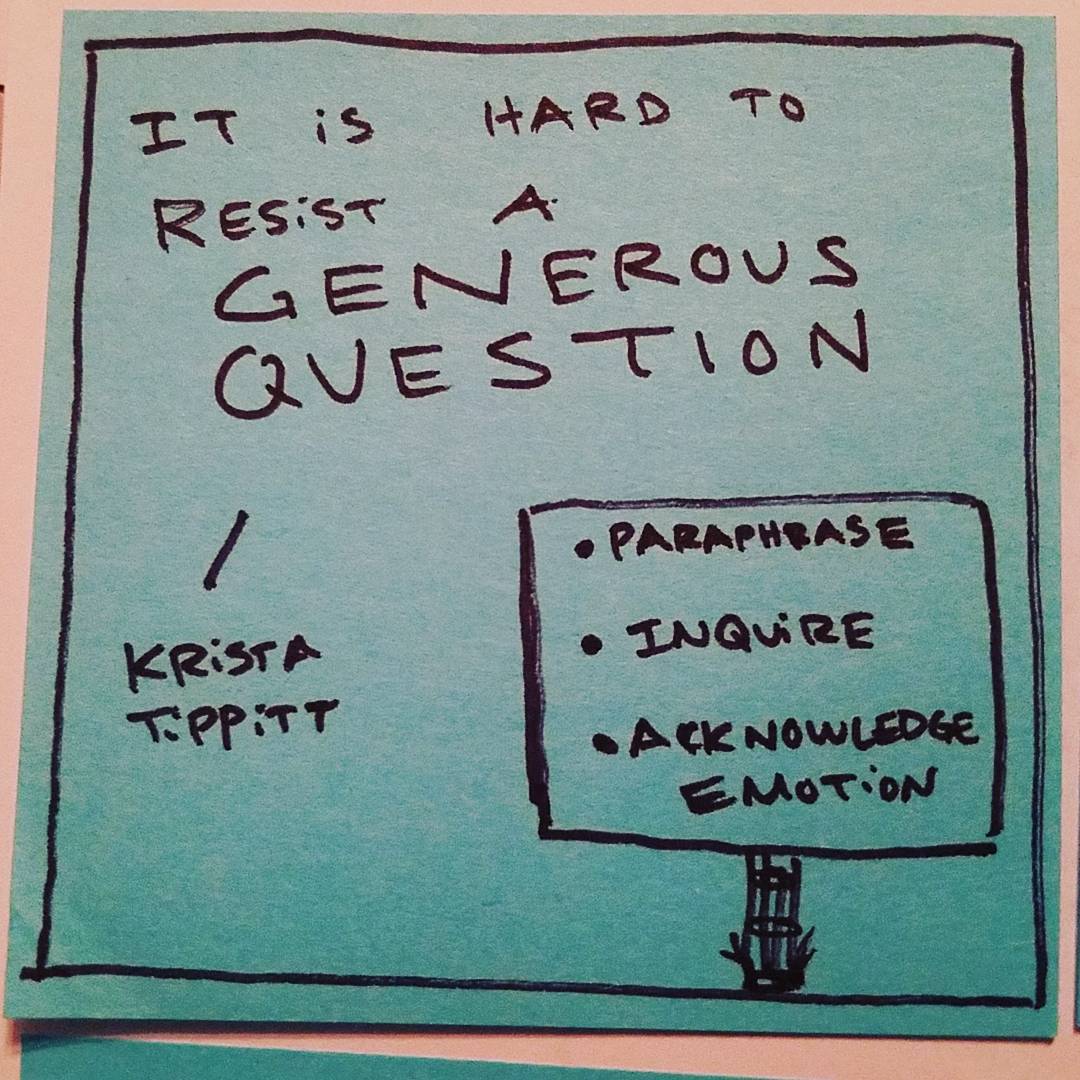 IT iS HARD TO
RESiST A
GENEROUS
QUESTION
/
KRiSTA
TiPPiTT
• PARAPHRASE
• INQUiRE
• ACKNOWLEDGE
EMOTiON